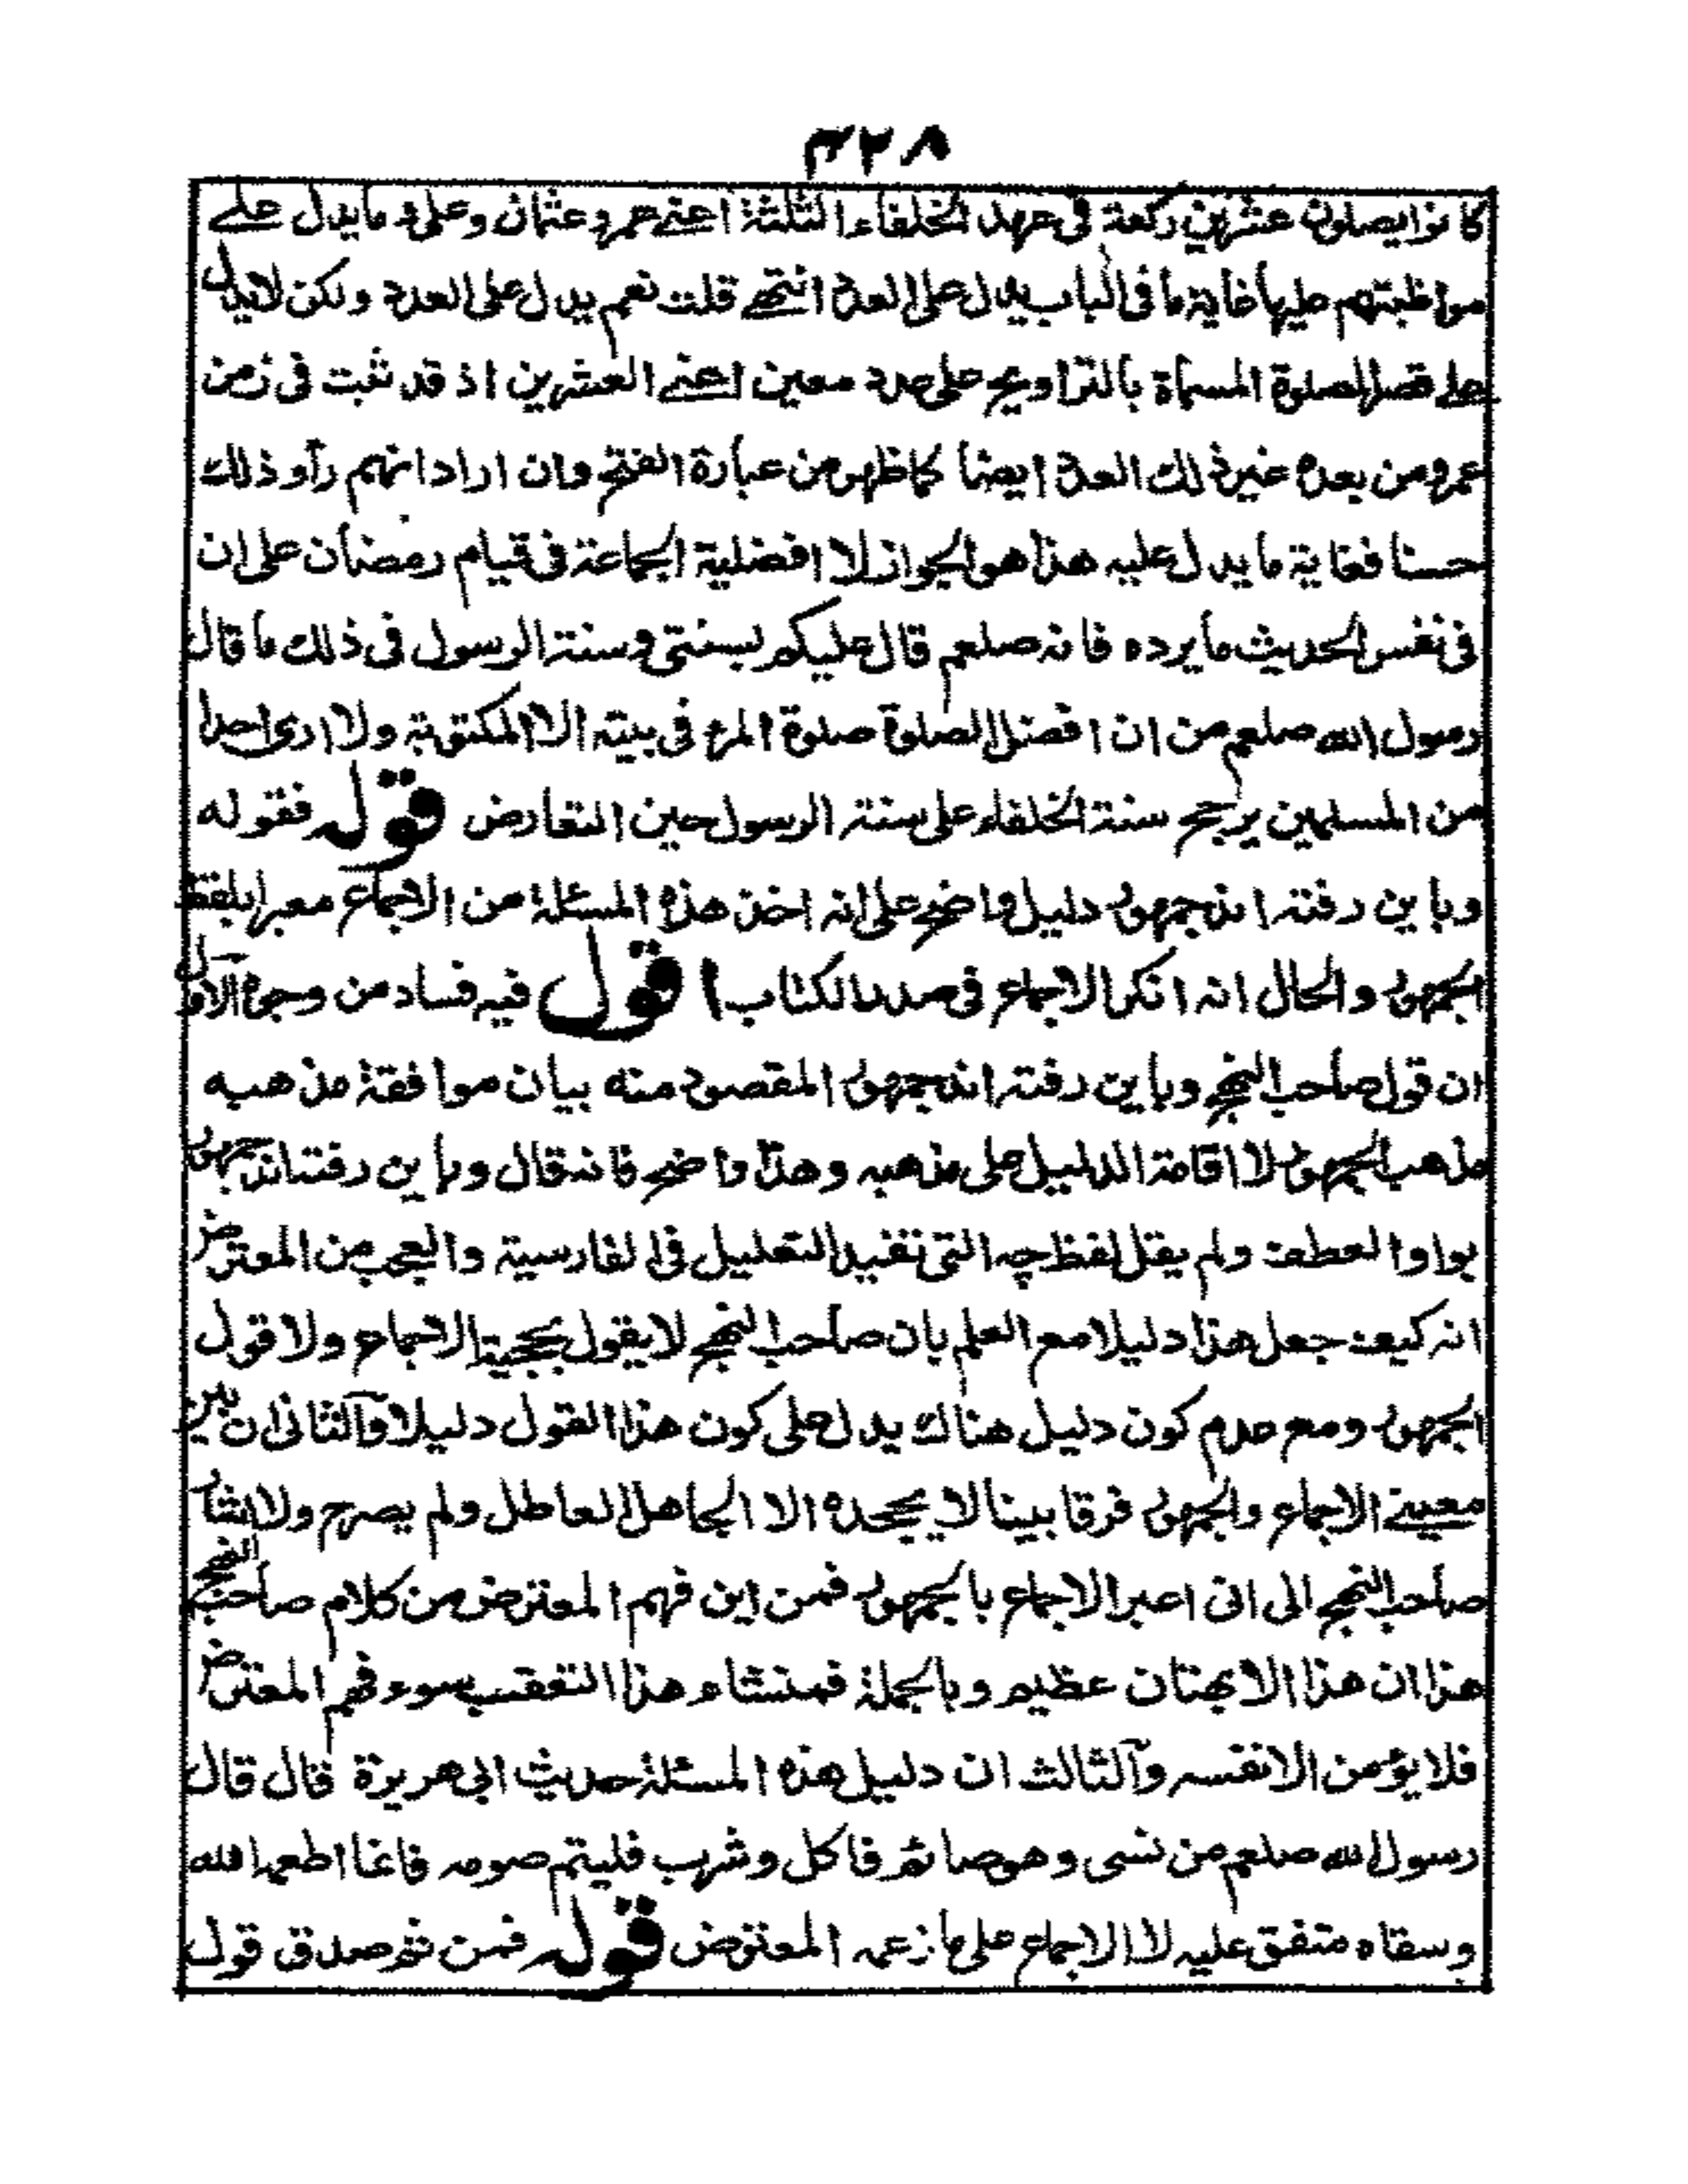 ۳۲۸
كانوا يصلون عشرين ركعة فى عهد الخلفاء الثلثة اعنے عمر وعثمان وعلى و ما يدل علے
مواظبتهم عليها غاية ما فى الباب يدل على العدد انتهے قلت نعم يدل على العدد ولكن لا يدل
علے قصر الصلوة المسماة بالتراويح على عدد معين اعنے العشرين اذ قد ثبت فى زمن
عمر ومن بعده غير ذلك العدد ايضا كما ظهر من عبارة الفتح وان اراد انهم رأو ذلك
حسنا فغاية ما يدل عليه هذا هو الجواز لا افضلية الجماعة فى قيام رمضان على ان
فى نفس الحديث ما يرده فانه صلعم قال عليكم بسنتى وسنة الرسول فى ذلك ما قال
رسول الله صلعم من ان افضل الصلوة صلوة المرء فى بيته الا المكتوبة ولا ارى احدا
من المسلمين يرجح سنة الخلفاء على سنة الرسول حين التعارض قوله فقوله
وباين رفته اند جمهور دليل واضح على انه اخذ هذه المسئلة من الاجماع معبرا بلفظ
الجمهور والحال انه انكر الاجماع فى صدر الكتاب اقول فيه فساد من وجوه الاول
ان قول صاحب النهج وباين رفته اند جمهور المقصود منه بيان موافقة مذهبه
مذهب الجمهور لا اقامة الدليل على مذهبه وهذا واضح فانه قال وباين رفته اند جمهور
بواو العطف ولم يقل لفظ چه التى تفيد التعليل فى الفارسية والعجب من المعترض
انه كيف جعل هذا دليلا مع العلم بان صاحب النهج لا يقول بحجية الاجماع ولا قول
الجمهور ومع عدم كون دليل هناك يدل على كون هذا القول دليلا وآلثانى ان بين
معنيے الاجماع والجمهور فرقا بينا لا يجحده الا الجاهل العاطل ولم يصرح ولا اشار
صاحب النهج الى انى اعبر الاجماع بالجمهور فمن اين فهم المعترض من كلام صاحب النهج
هذا ان هذا الا بهتان عظيم وبالجملة فمنشاء هذا التعقب سوء فهم المعترض
فلا يؤمن الا نفسه وآلثالث ان دليل هذه المسئلة حديث ابى هريرة قال قال
رسول الله صلعم من نسى وهو صائم فاكل وشرب فليتم صومه فانما اطعمه الله
وسقاه متفق عليه لا الاجماع على ما زعمه المعترض قوله فمن ثم صدق قول